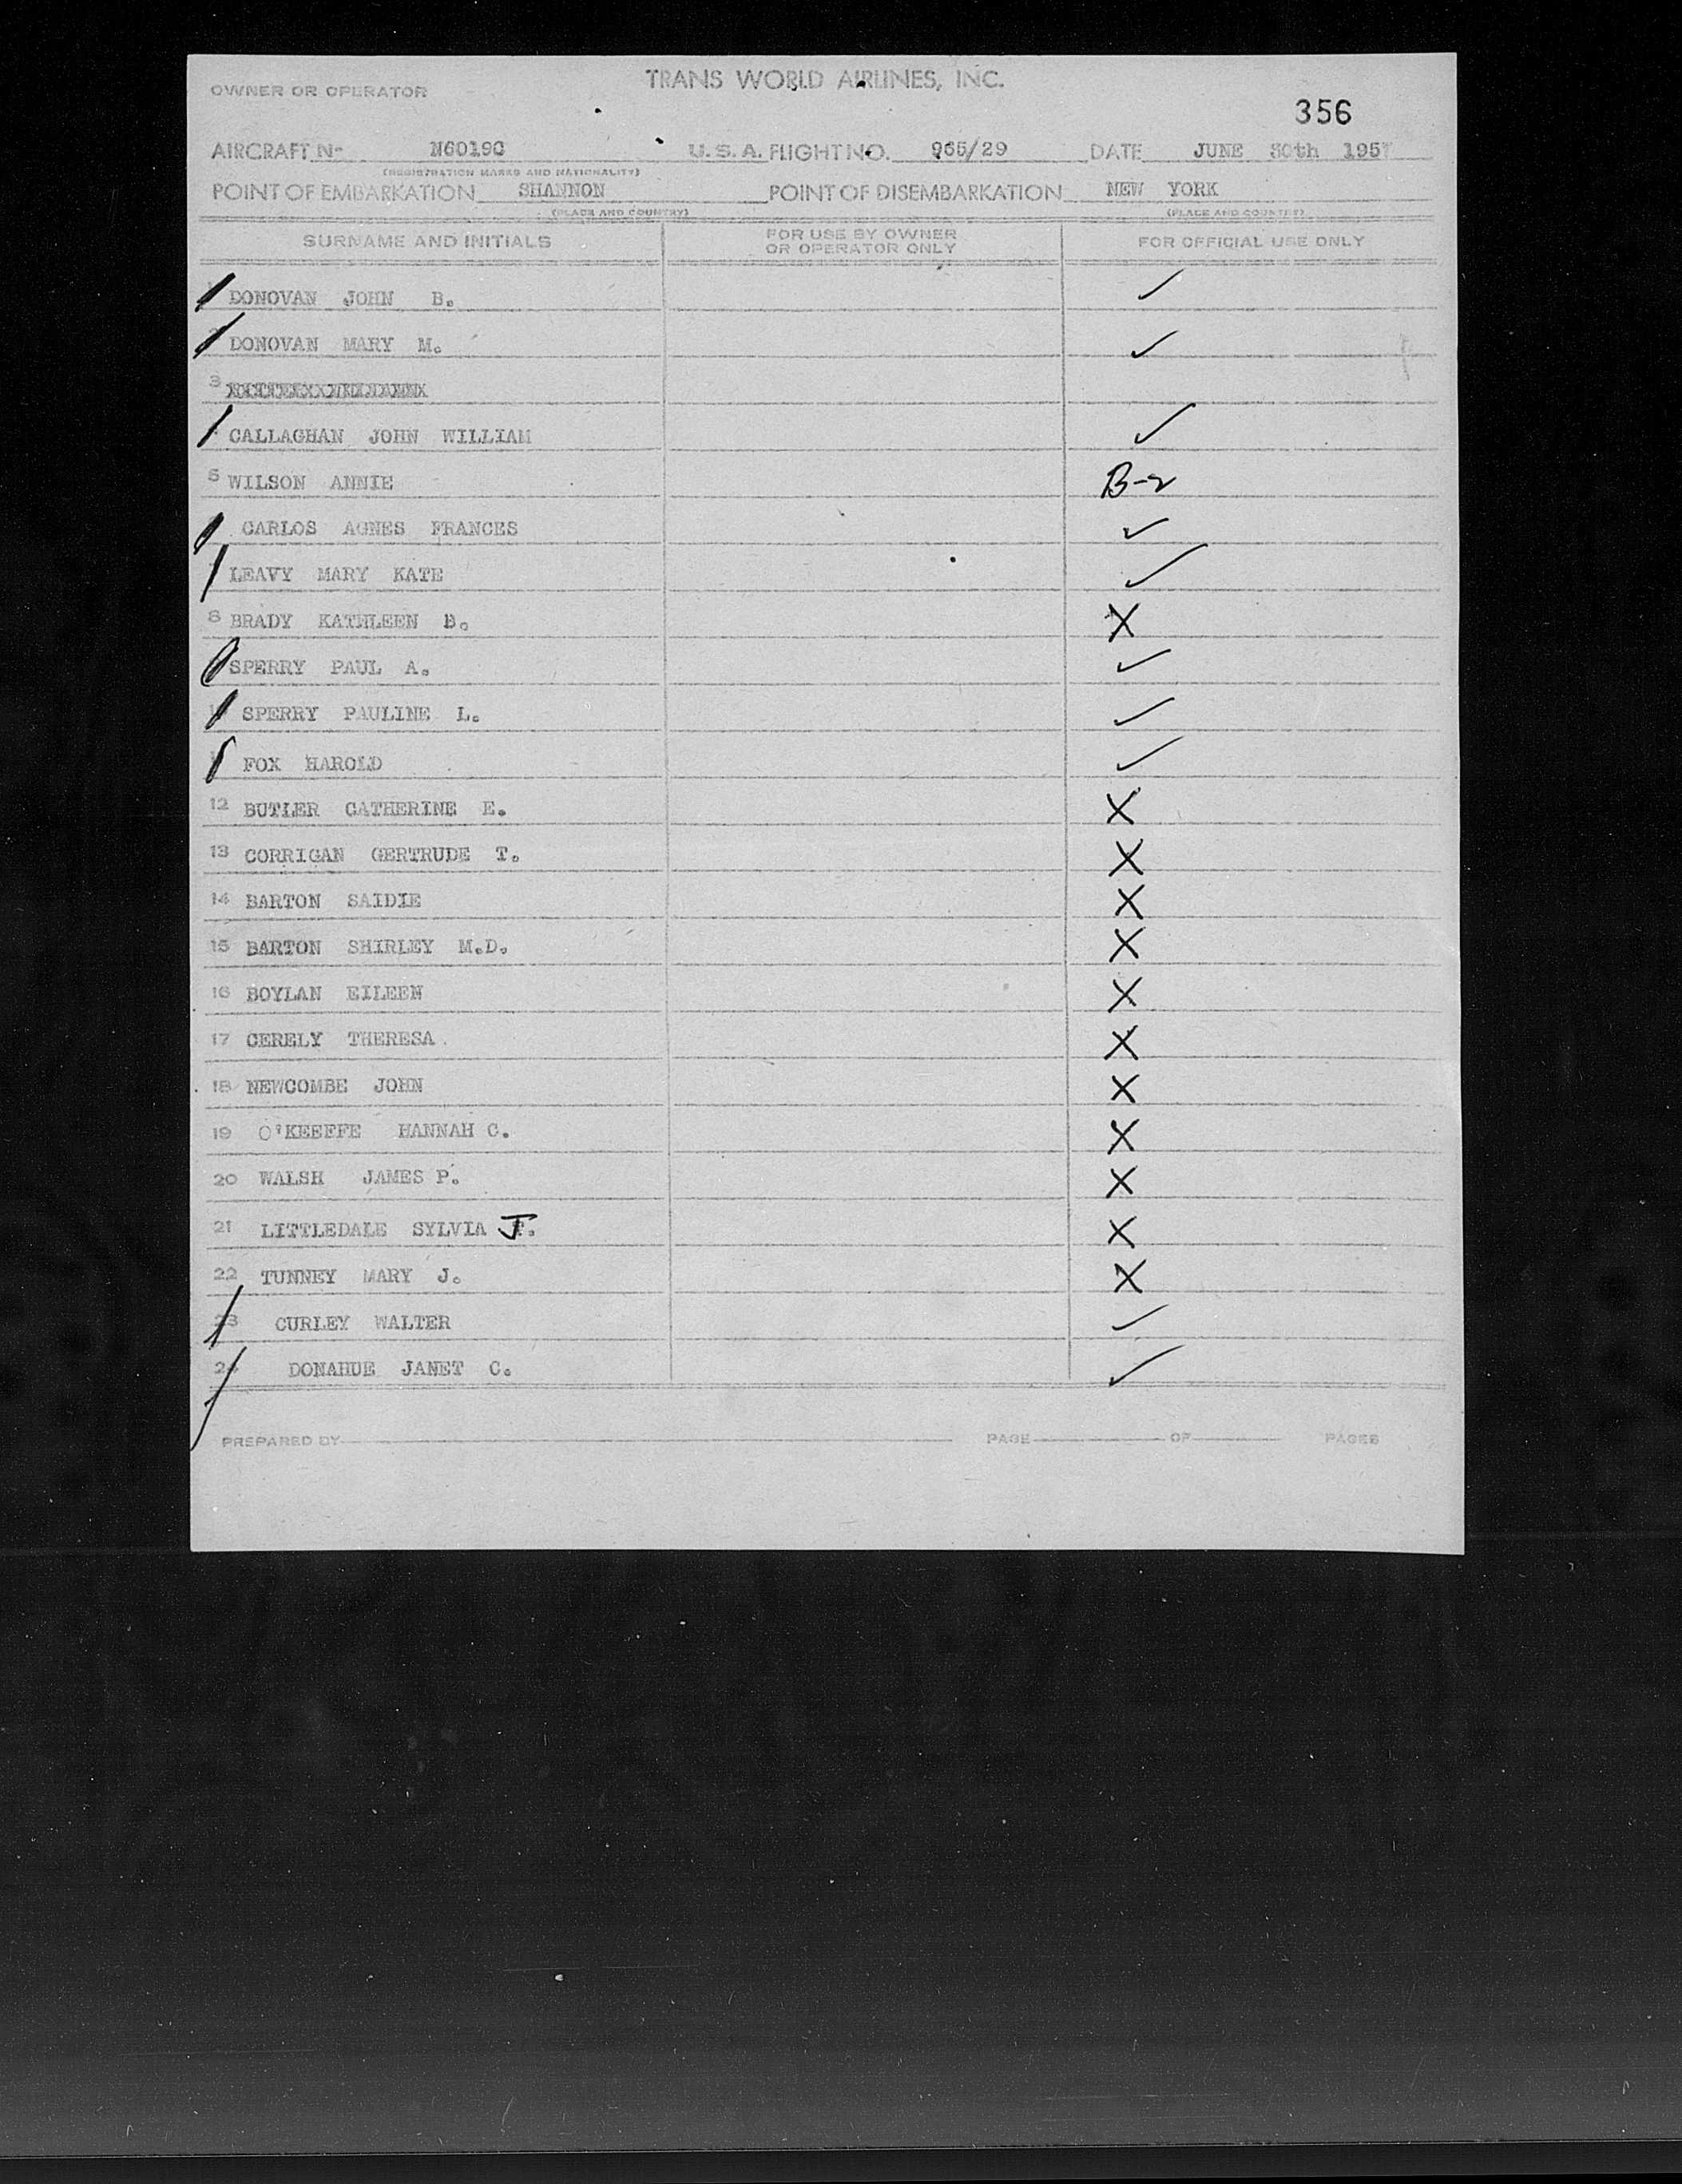 TRANS WORLD AIRLINES, INC.
OWNER OR OPERATOR
356
AIRCRAFT No N6019C U.S.A. FLIGHT NO. 965/29 DATE JUNE 30th 1957
(REGISTRATION MARKS AND NATIONALITY)
POINT OF EMBARKATION SHANNON POINT OF DISEMBARKATION NEW YORK
(PLACE AND COUNTRY) (PLACE AND COUNTRY)
SURNAME AND INITIALS FOR USE BY OWNER OR OPERATOR ONLY FOR OFFICIAL USE ONLY
DONOVAN JOHN B. ✓
DONOVAN MARY M. ✓
3
CALLAGHAN JOHN WILLIAM ✓
5 WILSON ANNIE B-2
CARLOS AGNES FRANCES ✓
LEAVY MARY KATE ✓
8 BRADY KATHLEEN B. X
SPERRY PAUL A. ✓
SPERRY PAULINE L. ✓
FOX HAROLD ✓
12 BUTLER CATHERINE E. X
13 CORRIGAN GERTRUDE T. X
14 BARTON SAIDIE X
15 BARTON SHIRLEY M.D. X
16 BOYLAN EILEEN X
17 CERELY THERESA X
18 NEWCOMBE JOHN X
19 O'KEEFFE HANNAH C. X
20 WALSH JAMES P. X
21 LITTLEDALE SYLVIA J. X
22 TUNNEY MARY J. X
23 CURLEY WALTER ✓
24 DONAHUE JANET C. ✓
PREPARED BY PAGE OF PAGES